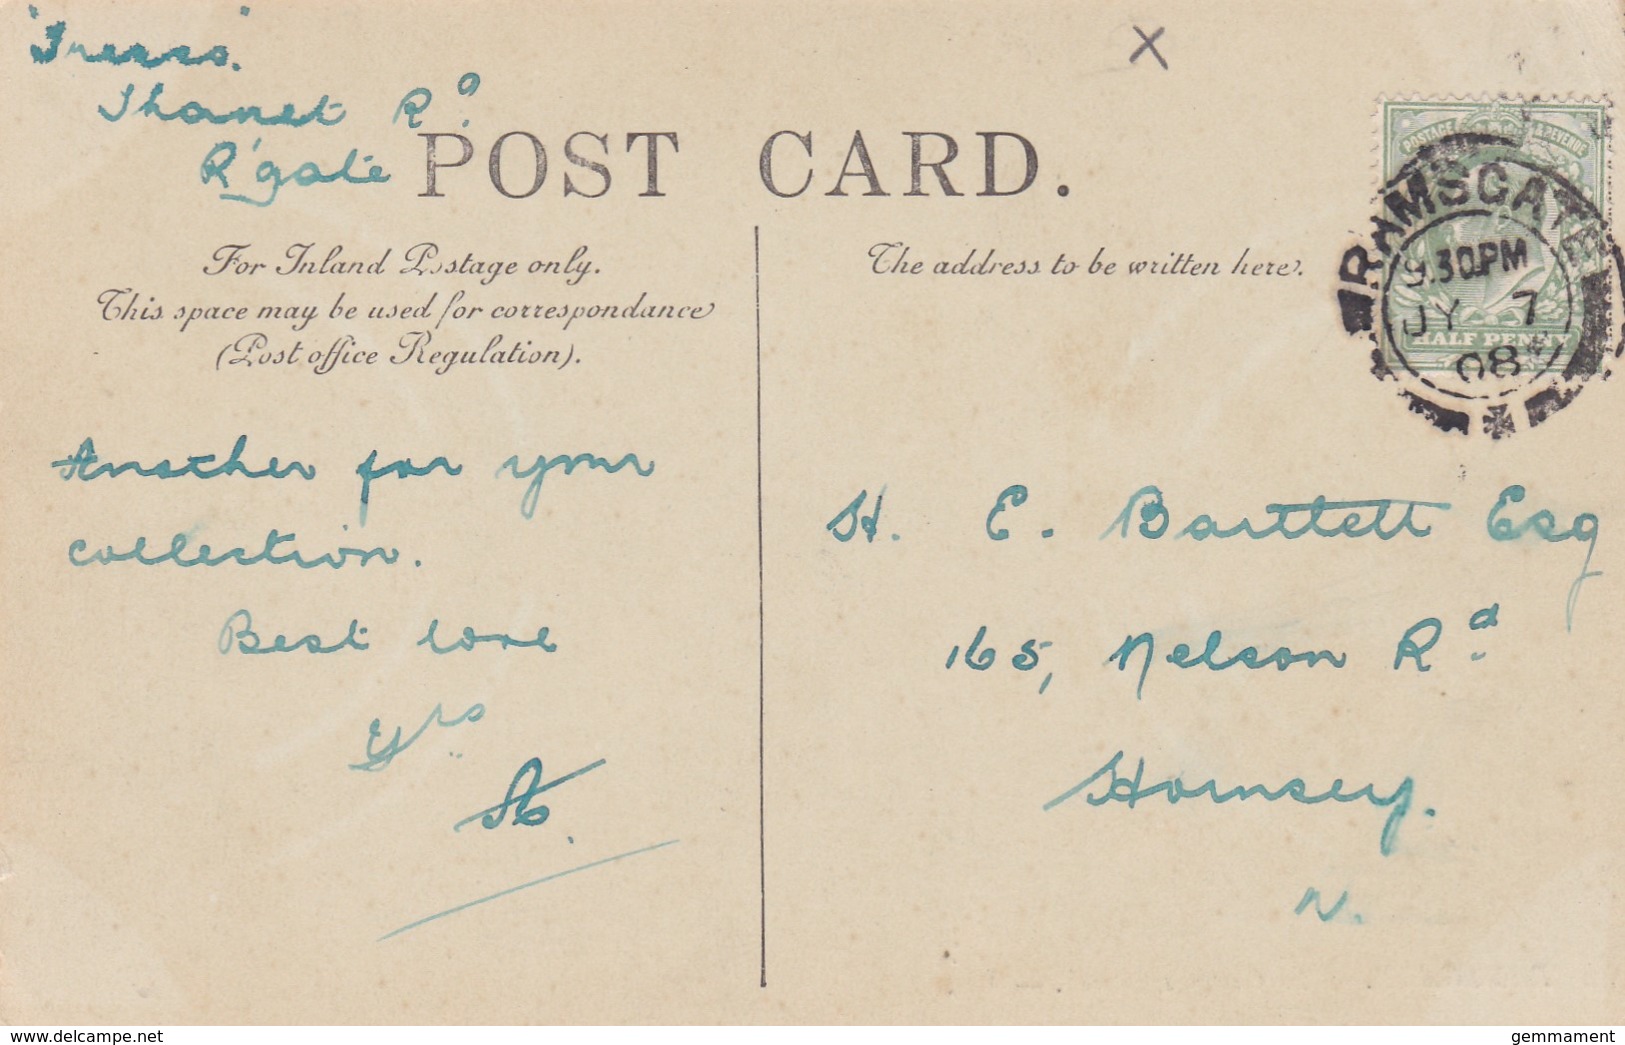 "Tresco".
Thanet Rd.
R'gate
POST CARD.
For Inland Postage only.
This space may be used for correspondance
(Post office Regulation).
Another for your
collection.
Best love
Yrs
A.
X
POSTAGE & REVENUE
HALF PENNY
RAMSGATE
9.30PM
JY 7
08
The address to be written here.
H. E. Bartlett Esq
165, Nelson Rd.
Hornsey.
N.
www.delcampe.net
gemmament